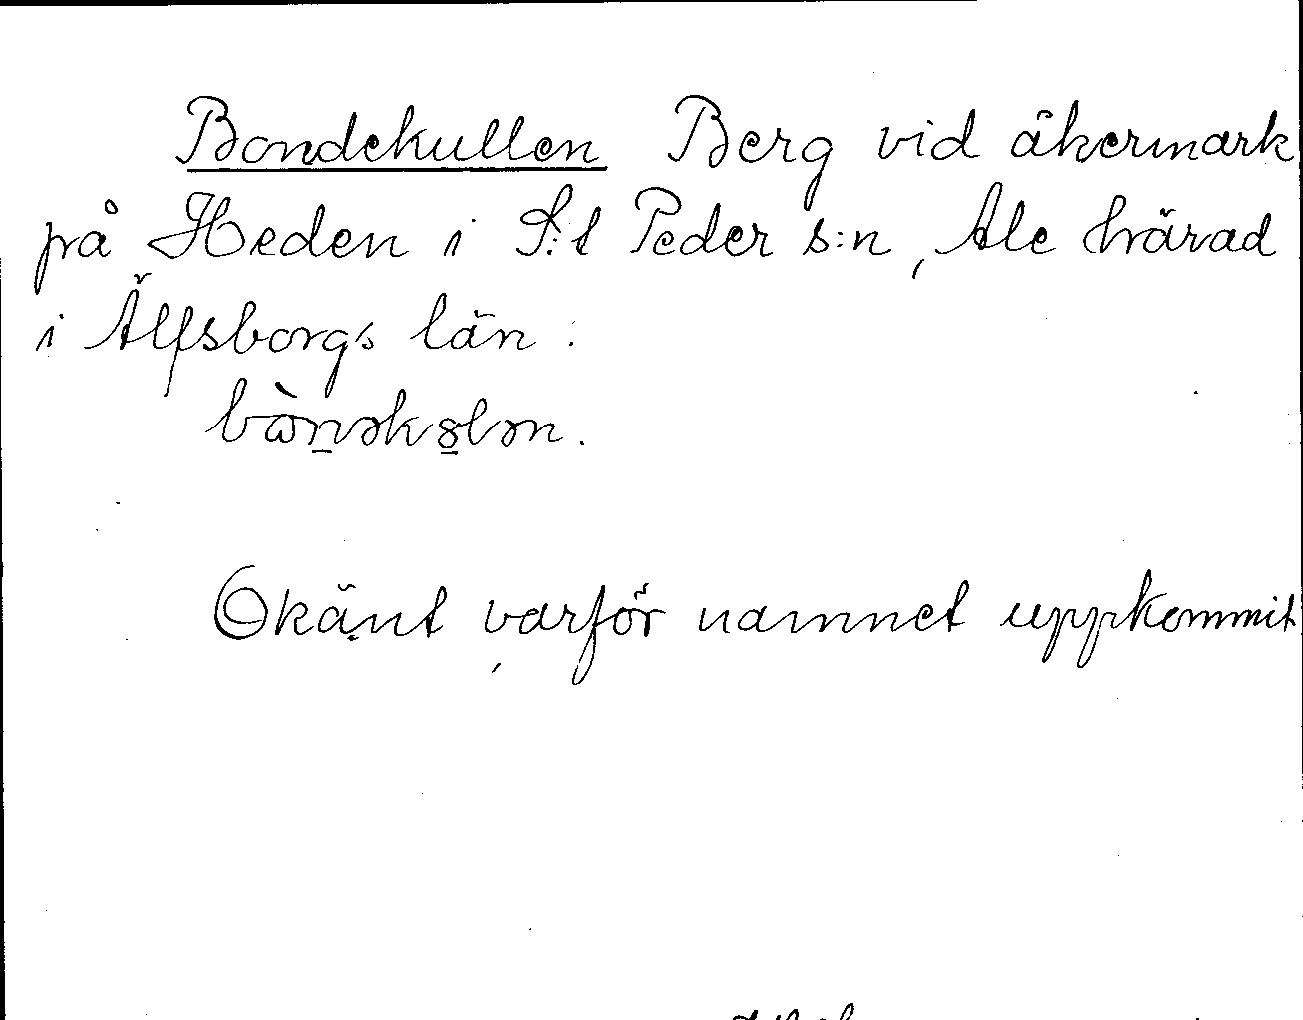 Bondekullen Berg vid åkermark
på Heden i S:t Peder s:n, Ale härad
i Älfsborgs län.
bὼn̲əkꝏ̲lən.
Okänt varför namnet uppkommit